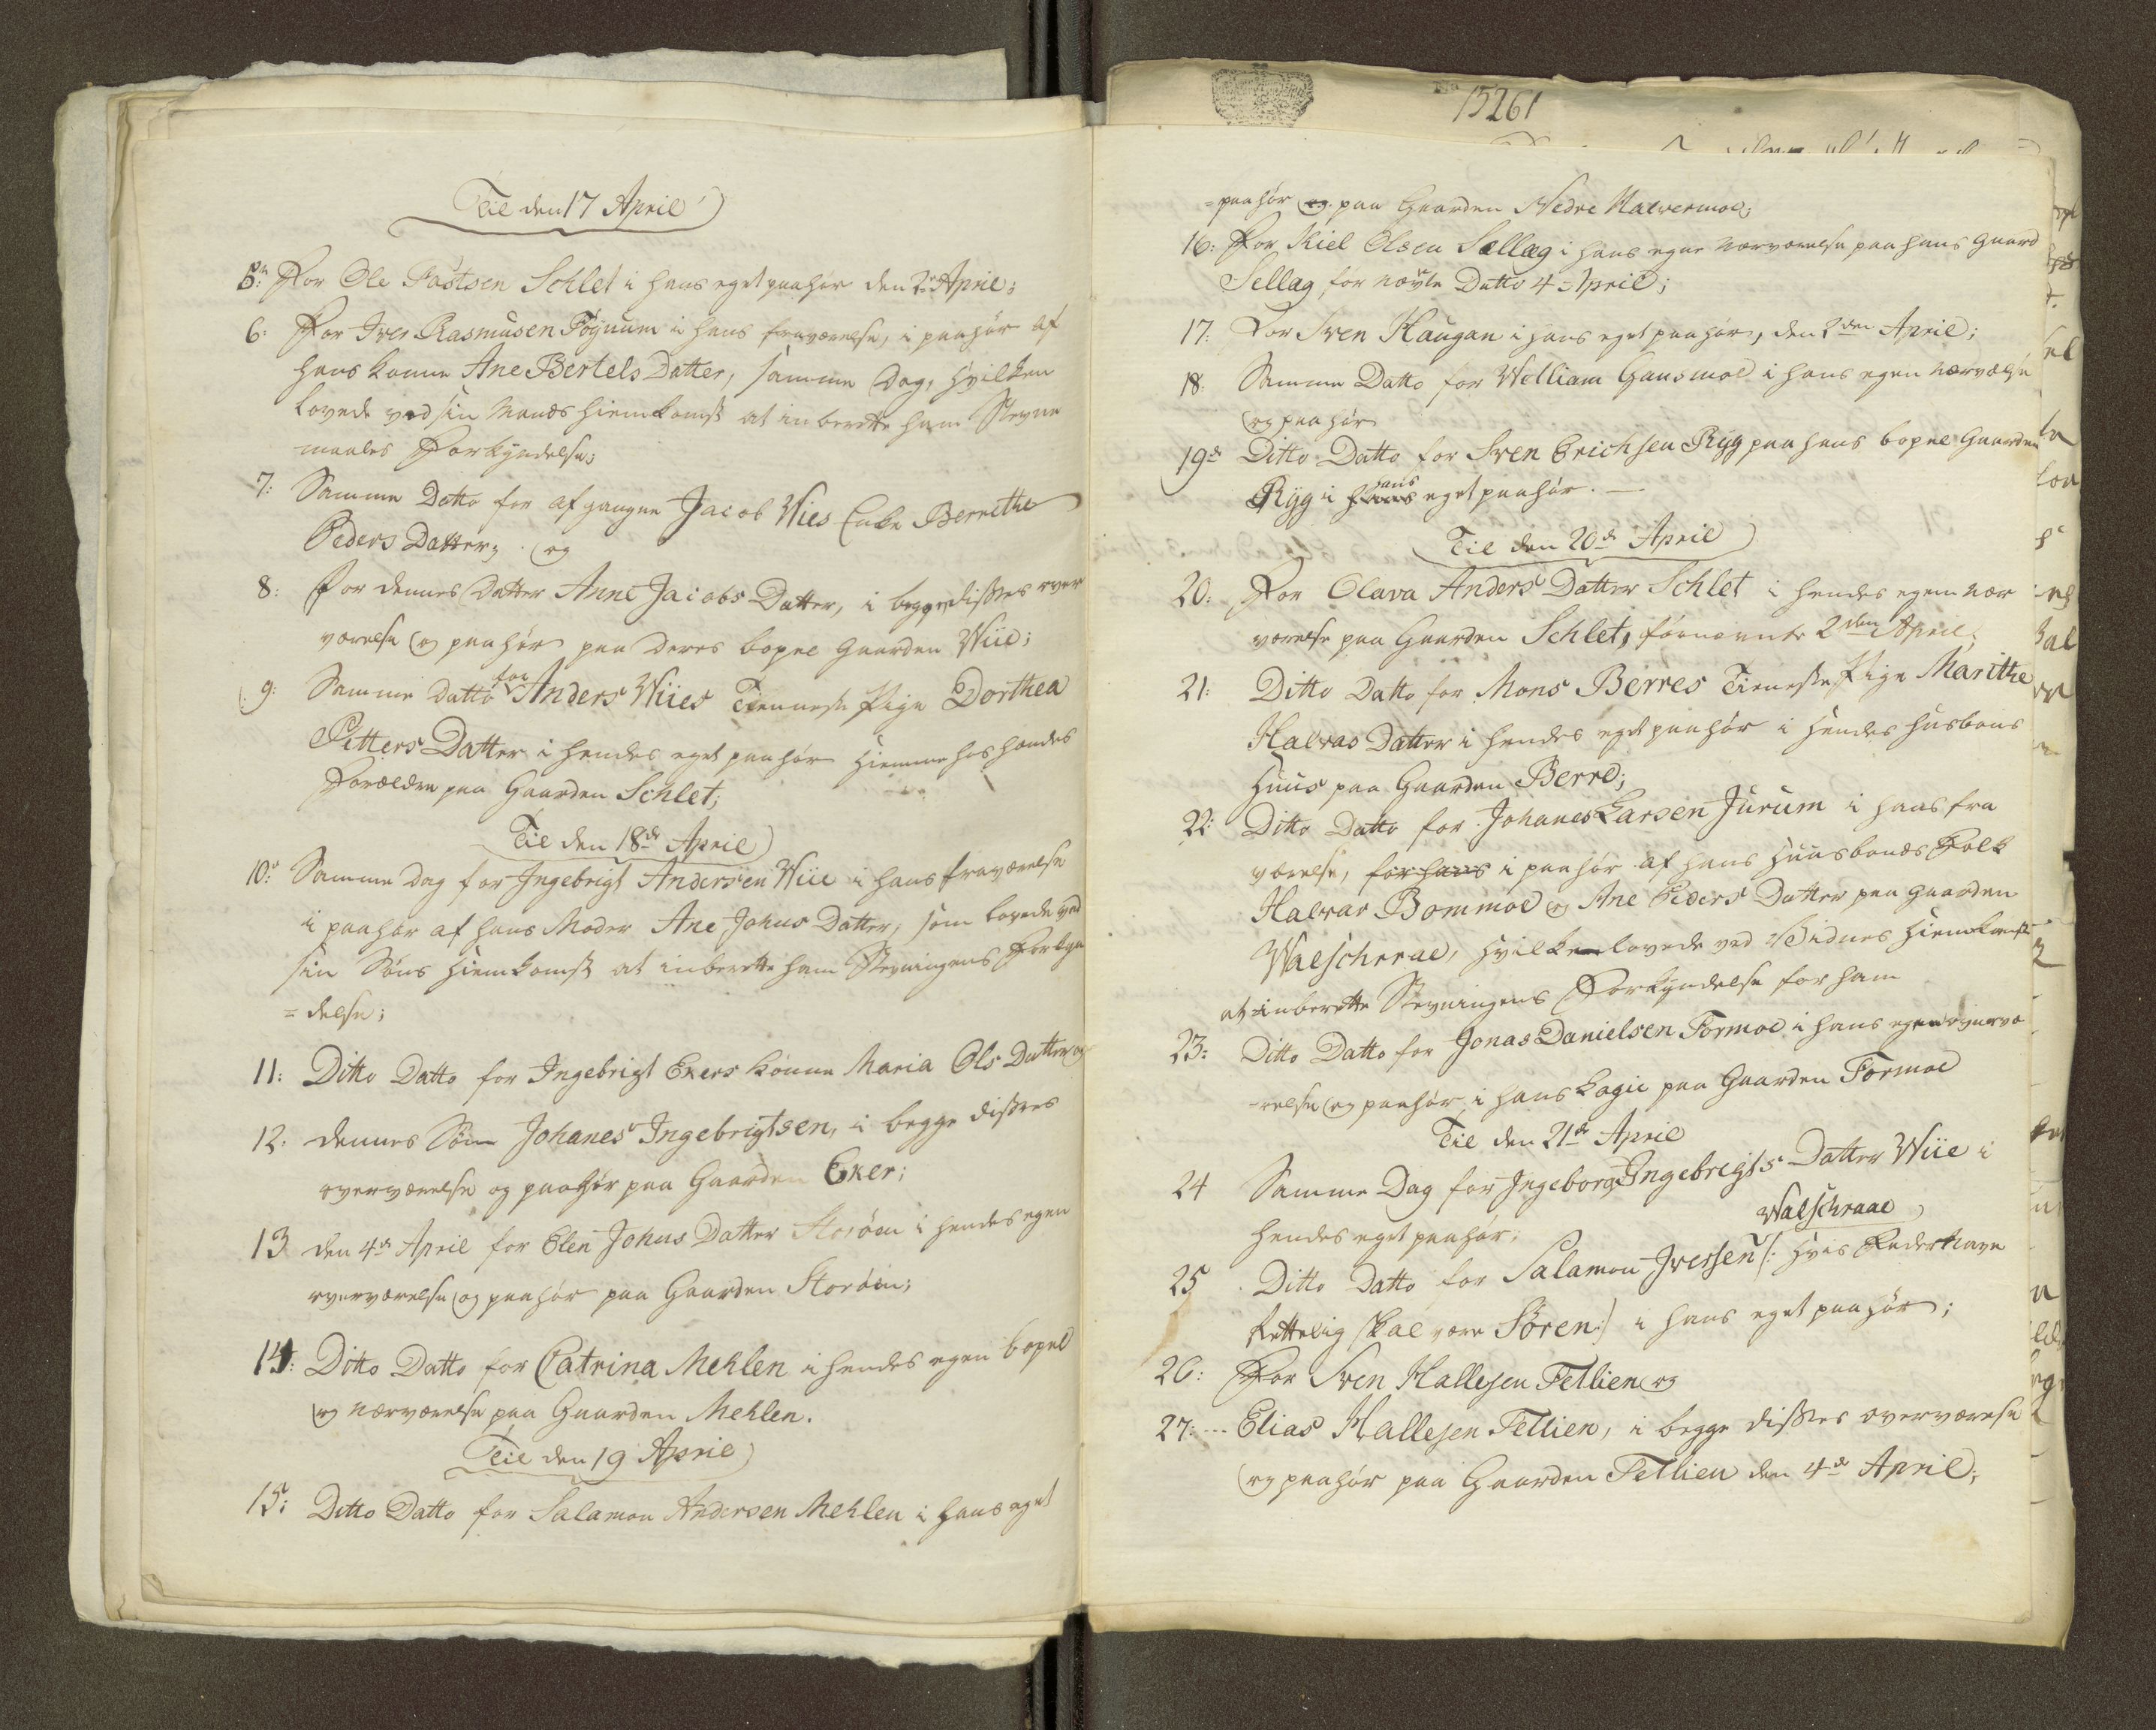 Til den 17 April
5te For Ole Fastsen Schlet i hans eget paahør den 2de April;
6: For Iver Rasmusen Føgnum i hans fraværelse, i paahør af
hans Konne Ane Bertels Datter, samme Dag, hvilken
lovede ved sin Mands hiemkomst at inberette ham Stevne
maalets Forkyndelse;
7: Samme Datto for afgangne Jacob Wies Enke Bernethe
Peders Datter; og
8: For dennes Datter Anne Jacobs Datter, i begge disses over
værelse og paahør paa deres bopæl Gaarden Wiie;
9: Samme Datto for Anders Wiies Tienneste Pige Dorthea
Pitters Datter i hendes eget paahør hiemme hos hendes
Forældre paa Gaarden Schlet;
Til den 18de April
10: Samme Dag for Ingebrigt Andersen Wiie i hans fraværelse
i paahør af hans Moder Ane Johns Datter, som lovede ved
sin Søns hiemkomst at inberette ham Stevningens Forkyn
=delse;
11: Ditto Datto for Ingebrigt Ekers Konne Maria Ols Datter og
12. dennes Søn Johanes Ingebrigtsen, i begge disses
overværelse og paahør paa Gaarden Eker;
13 den 4de April for Elen Johns Datter Storøen i hendes egen
overværelse og paahør paa Gaarden Storøen;
14: Ditto Datto for Catrina Mehlen i hendes egen bopæl
og nærværelse paa Gaarden Mehlen.
Til den 19 April
15: Ditto Datto for Salamon Andersen Mehlen i hans eget
15261
=paahør og paa Gaarden Nedre Halvermoe;
16: For Kiel Olsen Sellæg i hans egne nærværelse paa hans Gaard
Sellæg, for nævte Datto 4 April;
17: For Sven Haugan i hans eget paahør, den 2den April;
18. Samme Datto for Welliam Gansmoe i hans egen nærvælse
og paahør
19de Ditto Datto for Sven Erichsen Ryg paa hans bopæl Gaarden
Ryg i hans hans eget paahør. —
Til den 20de April
20: For Olava Anders Datter Schlet i hendes egen nær
værelse paa Gaarden Schlet, førnævnte 2den April;
21: Ditto Datto for Mons Berres Tieneste Pige Marithe
Halvas Datter i hendes eget paahør i hendes husbons
Huus paa Gaarden Berre;
22: Ditto Datto for Johanes Larsen Jurum i hans fra
værelse, for hans i paahør af hans Huusbonds Folk
Halvar Bommoe og Ane Peders Datter paa Gaarden
Walschraae, hvilke lovede ved Hiemkomst
at inberette Stevningens Forkyndelse for ham
23: Ditto Datto for Jonas Danielsen Formoe i hans egen overvæ
-relse og paahør i hans Logie paa Gaarden Formoe
Til den 21de April
24 Samme Dag for Ingeborg Ingebrigts Datter Wiie i
hendes eget paahør;
Walschraae
25 Ditto Datto for Salamon Iversen /: hvis Fadernavn
Rettelig skal være Søren :/ i hans eget paahør;
26: For Sven Hallesen Fellien og
27: Elias Hallesen Fellien, i begge disses overværelse
og paahør paa Gaarden Fellien den 4de April;